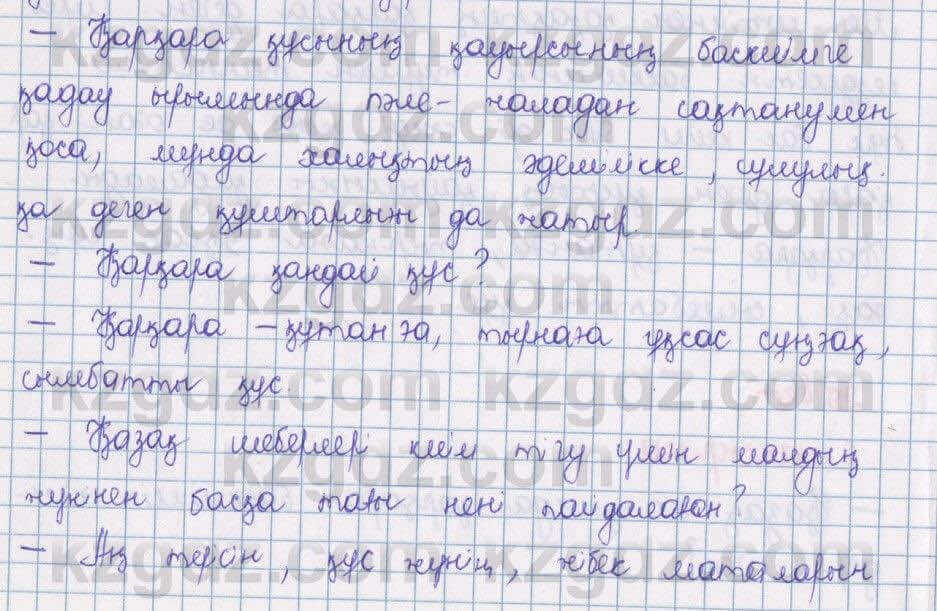 – Қарқара құсының қауырсының баскиімге
қадау ырымында пәле- жаладан сақтанумен
қоса, мұнда халықтың әдемілікке, сұлулық.
қа деген құштарлығы да жатыр
– Қарқара қандай құс?
– Қарқара – құтанға, тырнаға ұқсас сұңғақ,
сымбатты құс.
– Қазақ шеберлері киім тігу үшін малдың
жүннен басқа тағы нені пайдаланған?
– Аң терісін, құс жүнің, жібек маталарын
kzgdz.com